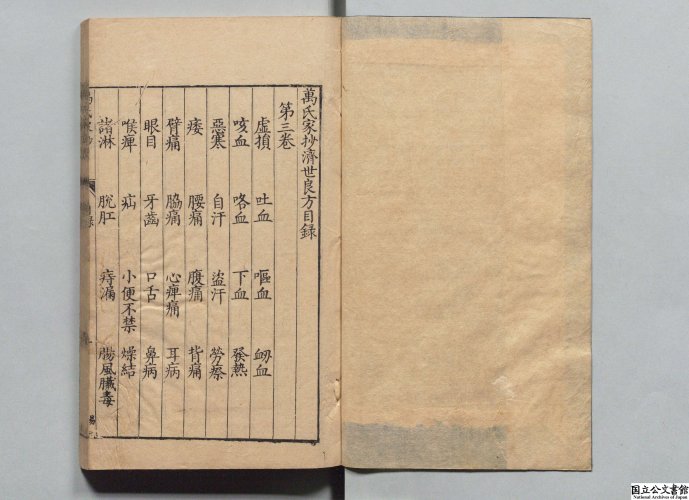 萬氏家抄濟世良方目録
第三卷
虛損 吐血 嘔血 衂血
咳血 咯血 下血 發熱
惡寒 自汗 盜汗 勞瘵
痿 腰痛 腹痛 背痛
臂痛 脇痛 心痺痛 耳病
眼目 牙齒 口舌 鼻病
喉痺 疝 小便不禁 燥結
諸淋 脫肛 痔漏 腸風臟毒
国立公文書館
National Archives of Japan